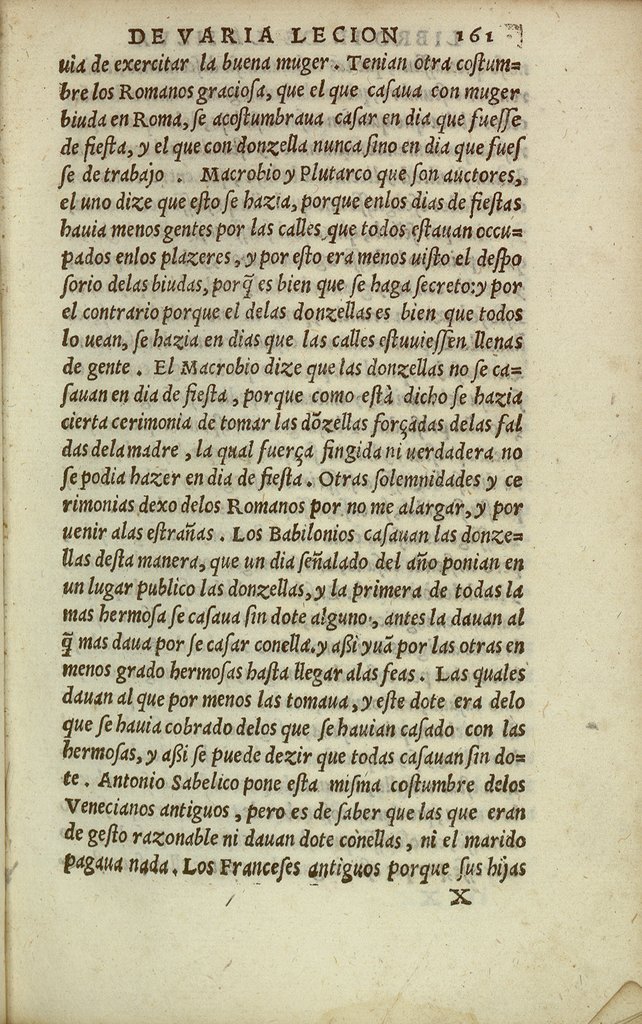 DE VARIA LECION 161
uia de exercitar la buena muger. Tenian otra costum=
bre los Romanos graciosa, que el que casaua con muger
biuda en Roma, se acostumbraua casar en dia que fuesse
de fiesta, y el que con donzella nunca sino en dia que fues
se de trabajo. Macrobio y Plutarco que son auctores,
el uno dize que esto se hazia, porque enlos dias de fiestas
hauia menos gentes por las calles que todos estauan occu=
pados enlos plazeres, y por esto era menos uisto el despo
sorio delas biudas, porq̃ es bien que se haga secreto: y por
el contrario porque el delas donzellas es bien que todos
lo uean, se hazia en dias que las calles estuuiessen llenas
de gente. El Macrobio dize que las donzellas no se ca=
sauan en dia de fiesta, porque como està dicho se hazia
cierta cerimonia de tomar las dõzellas forçadas delas fal
das dela madre, la qual fuerça fingida ni uerdadera no
se podia hazer en dia de fiesta. Otras solemnidades y ce
rimonias dexo delos Romanos por no me alargar, y por
uenir alas estrañas. Los Babilonios casauan las donze=
llas desta manera, que un dia señalado del año ponian en
un lugar publico las donzellas, y la primera de todas la
mas hermosa se casaua sin dote alguno, antes la dauan al
q̃ mas daua por se casar conella. y aßi yuã por las otras en
menos grado hermosas hasta llegar alas feas. Las quales
dauan al que por menos las tomaua, y este dote era delo
que se hauia cobrado delos que se hauian casado con las
hermosas, y aßi se puede dezir que todas casauan sin do=
te. Antonio Sabelico pone esta misma costumbre delos
Venecianos antiguos, pero es de saber que las que eran
de gesto razonable ni dauan dote conellas, ni el marido
pagaua nada. Los Franceses antiguos porque sus hijas
X